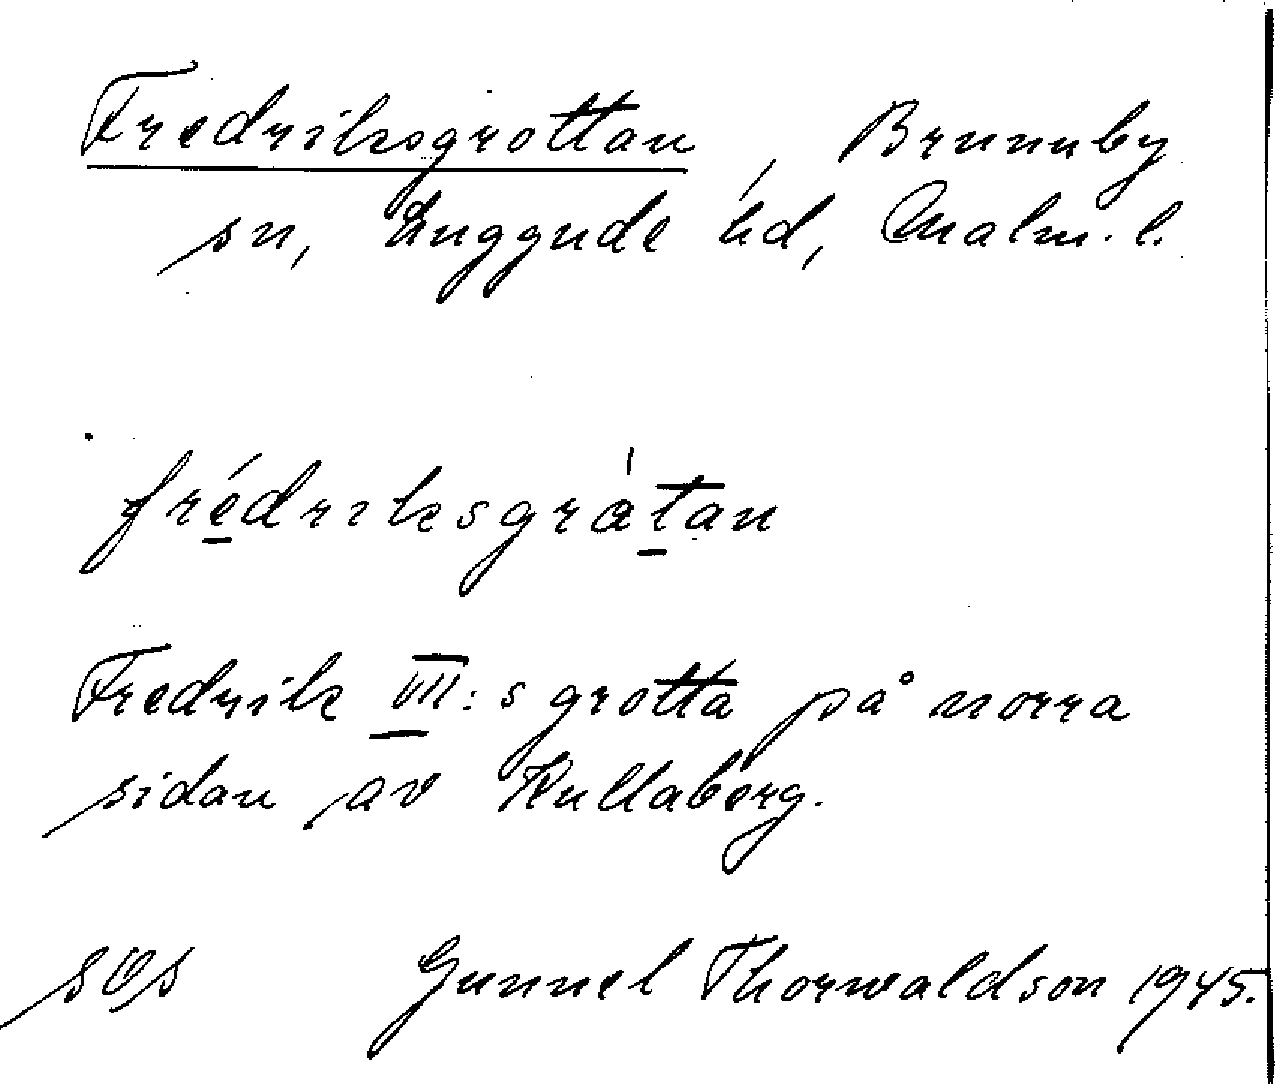 Fredriksgrottan, Brunnby
sn, Luggude hd, Malm. l.
frédriksgråtan
Fredrik VII:s grotta på norra
sidan av Kullaberg.
Gunnel Thorwaldson 1945.